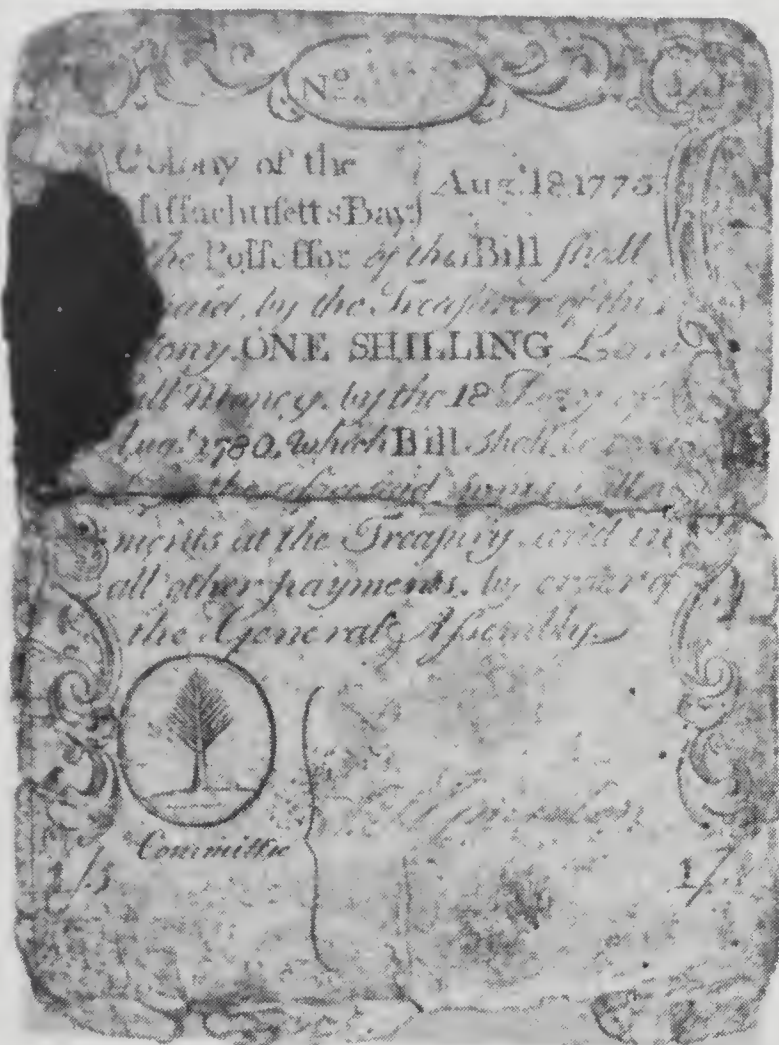 No.
Colony of the
assachusetts Bay.
Aug.t 18. 1775.
the Possessor of this Bill shall
paid, by the Treasurer of this
lony, ONE SHILLING Law
full Money, by the 18 Day of
Aug.t 1780. which Bill shall be
the aforesaid
ments at the Treasury and in
all other payments, by order of
the General Assembly.
Committee
1/
1/